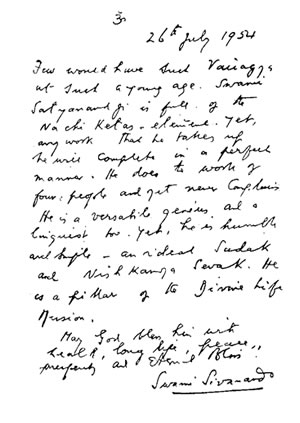 ॐ
26th July 1954
Few would have such Vairagya
at such a young age. Swami
Satyanandji is full of the
Nachiketas-element. Yet,
any work that he takes up,
he will complete in a perfect
manner. He does the work of
four people and yet never complains
He is a versatile genius and a
linguist too. Yet, he is humble
and simple - an ideal Sadak
and Nishkama Sevak. He
is a pillar of the Divine Life
Mission.
May God bless him with
health, long life, peace,
prosperity and Eternal Bliss.
Swami Sivananda